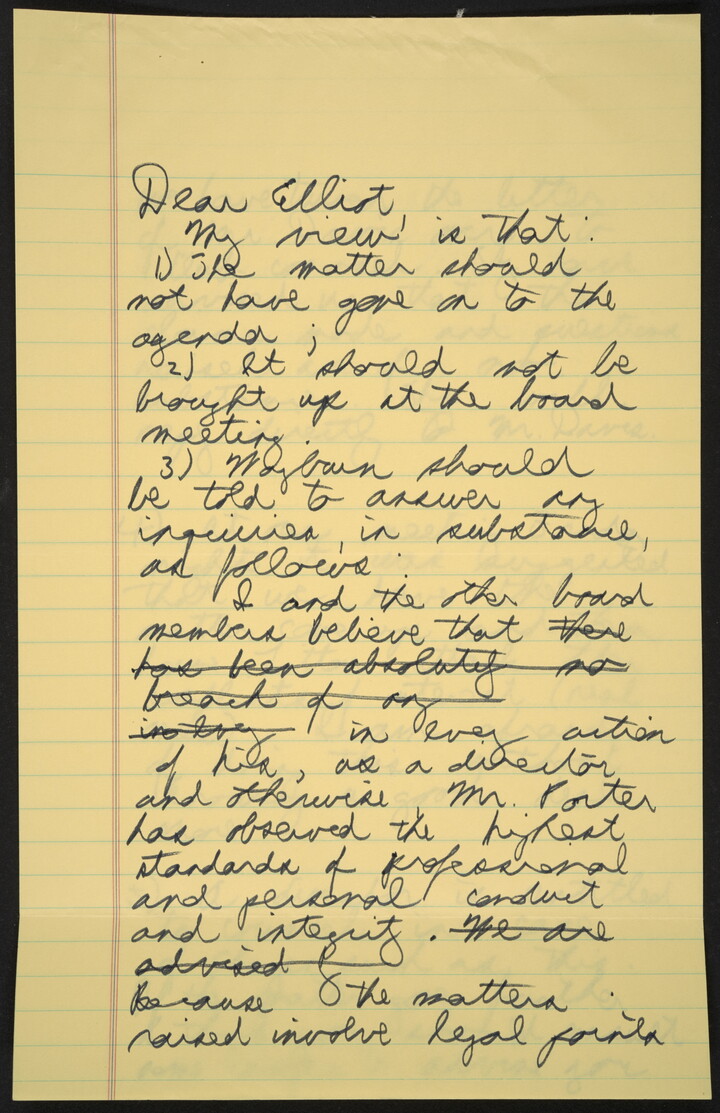 Dear Elliot,
My view is that:
1) The matter should
not have gone on to the
agenda;
2) It should not be
brought up at the board
meeting.
3) Mayburn should
be told to answer any
inquiries, in substance,
as follows:
I and the other board
members believe that there
has been absolutely no
breach of any
in every action
of his, as a director
and otherwise, Mr. Porter
has observed the highest
standards of professional
and personal conduct
and integrity. We are
advised
Because the matters
raised involve legal points